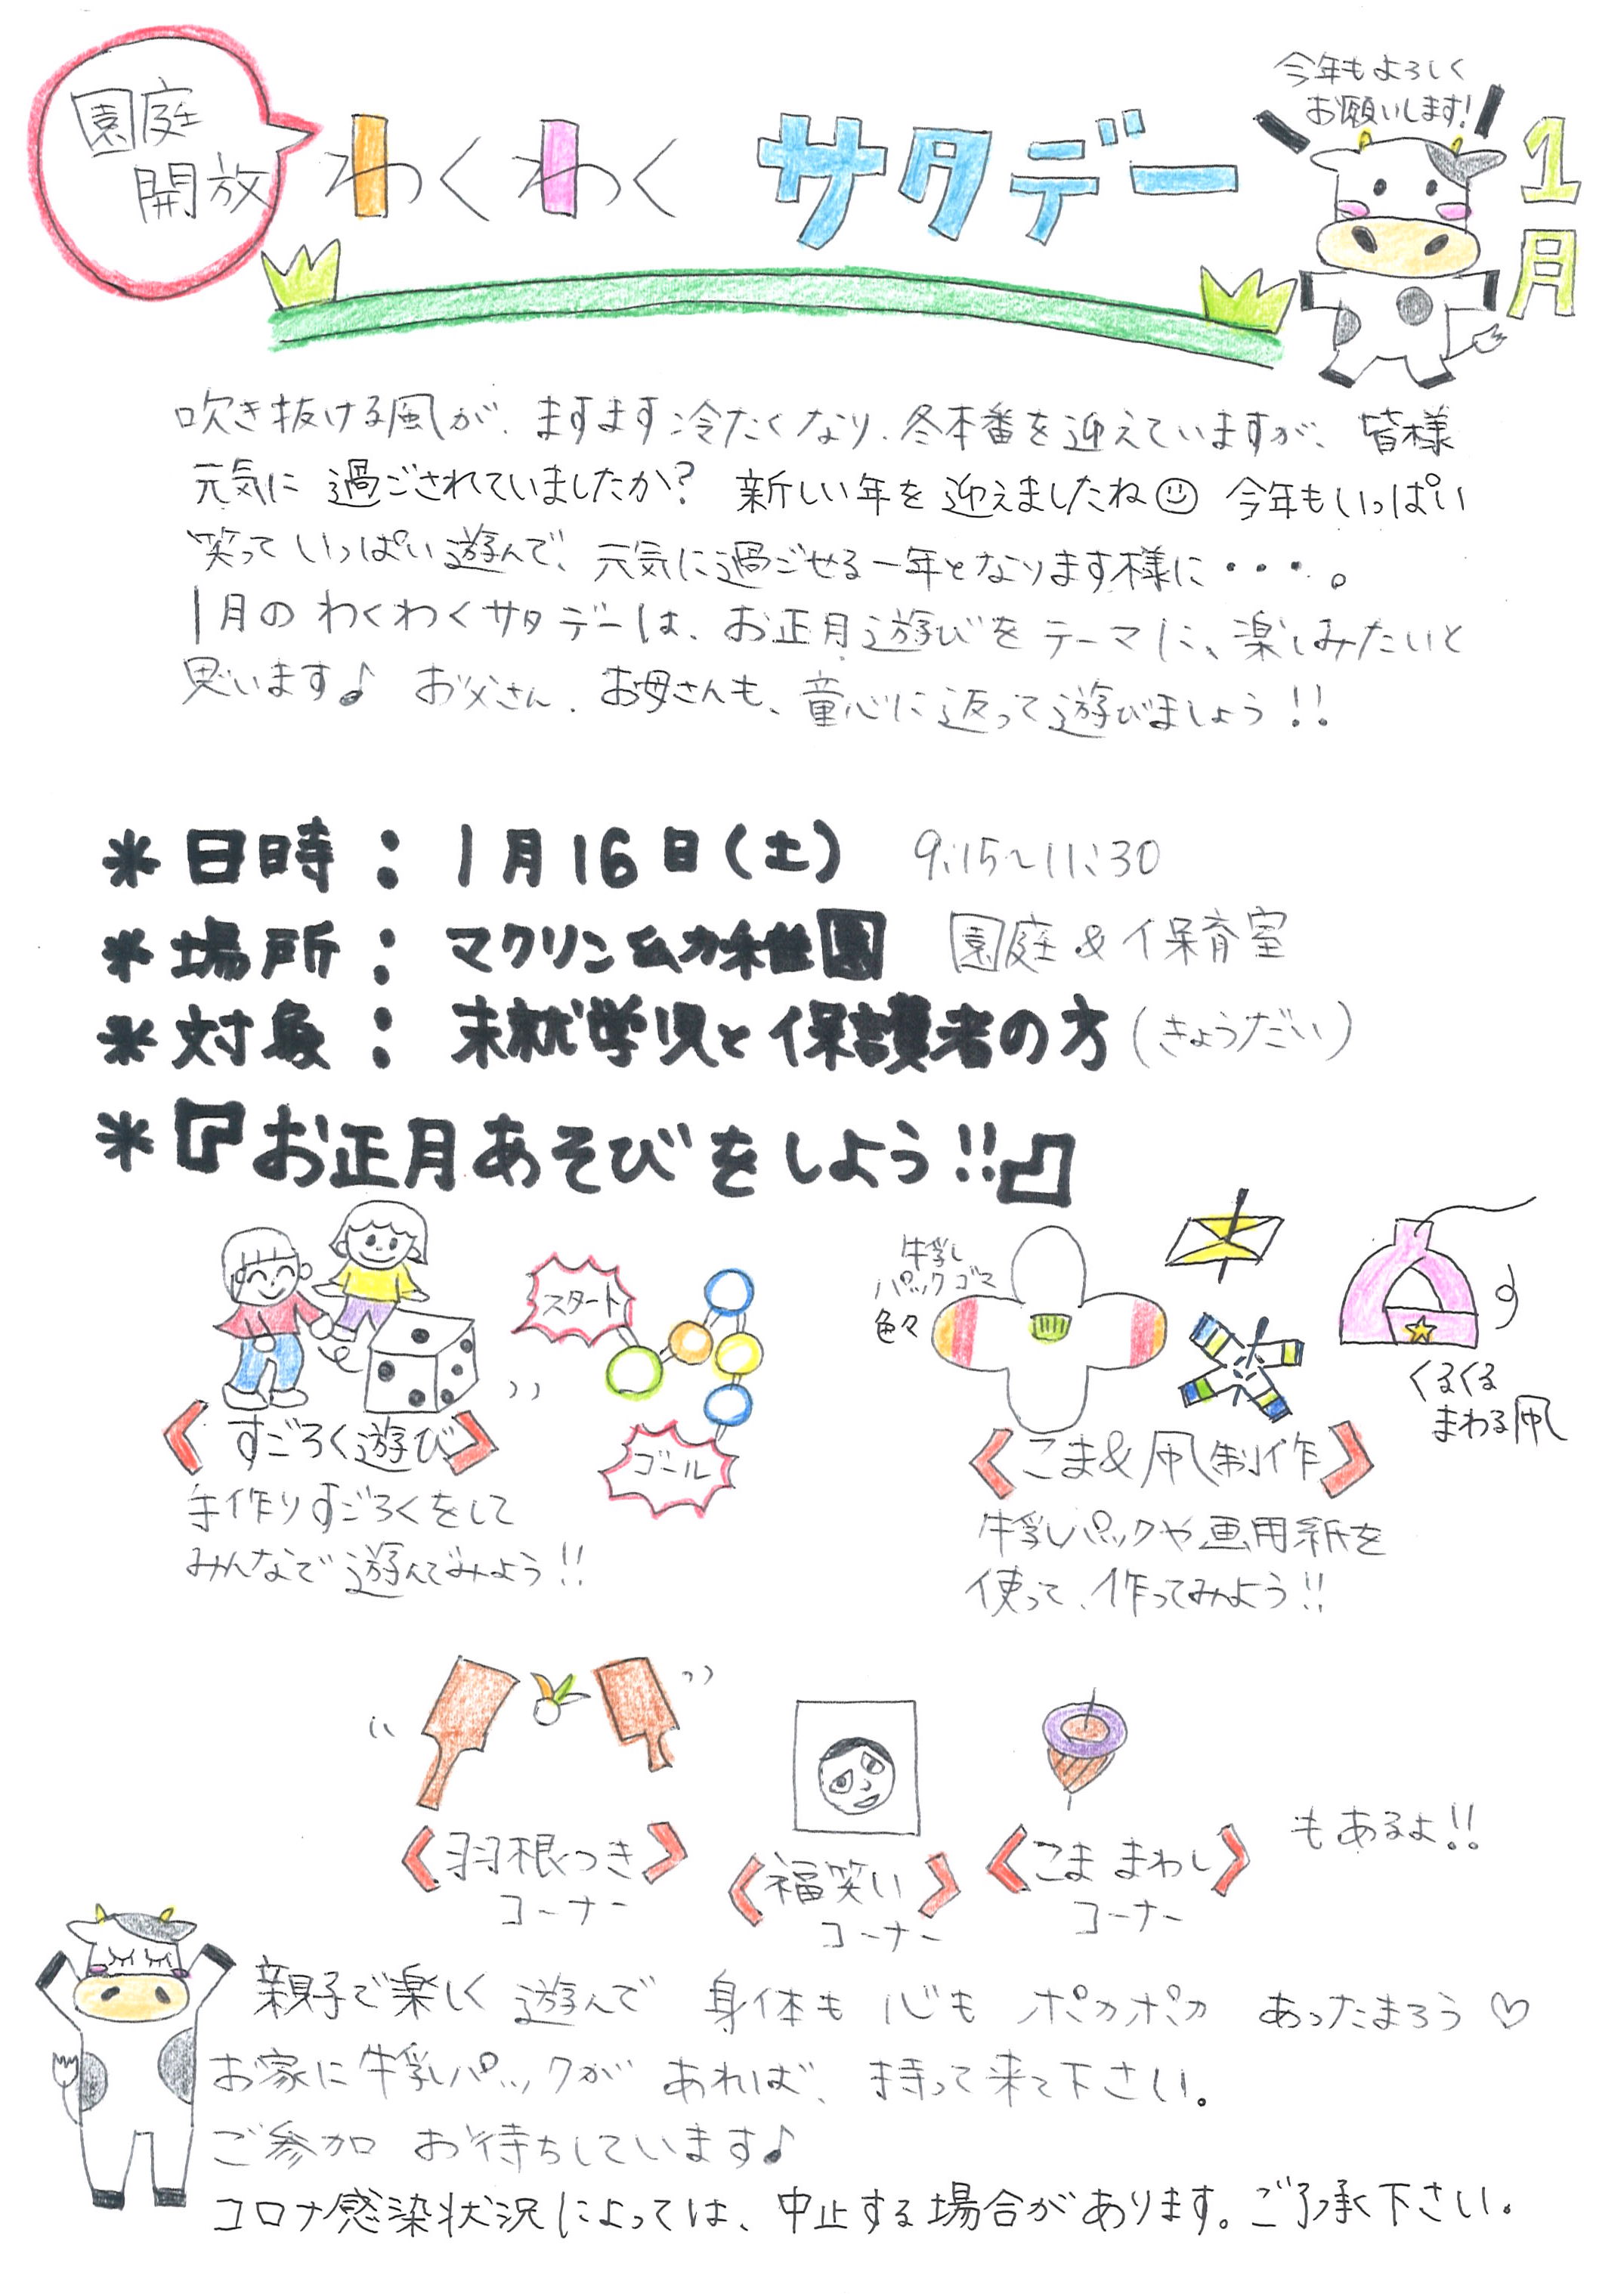 園庭
開放
わくわく サタデー
今年もよろしく
お願いします!
1月
吹き抜ける風が、ますます冷たくなり、冬本番を迎えていますが、皆様
元気に過ごされていましたか? 新しい年を迎えましたね☺ 今年もいっぱい
笑っていっぱい遊んで、元気に過ごせる一年となります様に・・・。
1月のわくわくサタデーは、お正月遊びをテーマに、楽しみたいと
思います♪ お父さん、お母さんも、童心に返って遊びましょう!!
*日時:1月16日(土) 9:15~11:30
*場所:マクリン幼稚園 園庭&保育室
*対象:未就学児と保護者の方(きょうだい)
*『お正月あそびをしよう!!』
スタート
ゴール
《すごろく遊び》
手作りすごろくをして
みんなで遊んでみよう!!
牛乳
パックゴマ
色々
くるくる
まわる凧
《こま&凧制作》
牛乳パックや画用紙を
使って、作ってみよう!!
《羽根つき》
コーナー
《福笑い》
コーナー
《こままわし》
コーナー
もあるよ!!
親子で楽しく遊んで 身体も心も ポカポカ あったまろう♡
お家に牛乳パックが あれば、持って来て下さい。
ご参加 お待ちしています♪
コロナ感染状況によっては、中止する場合があります。ご了承下さい。